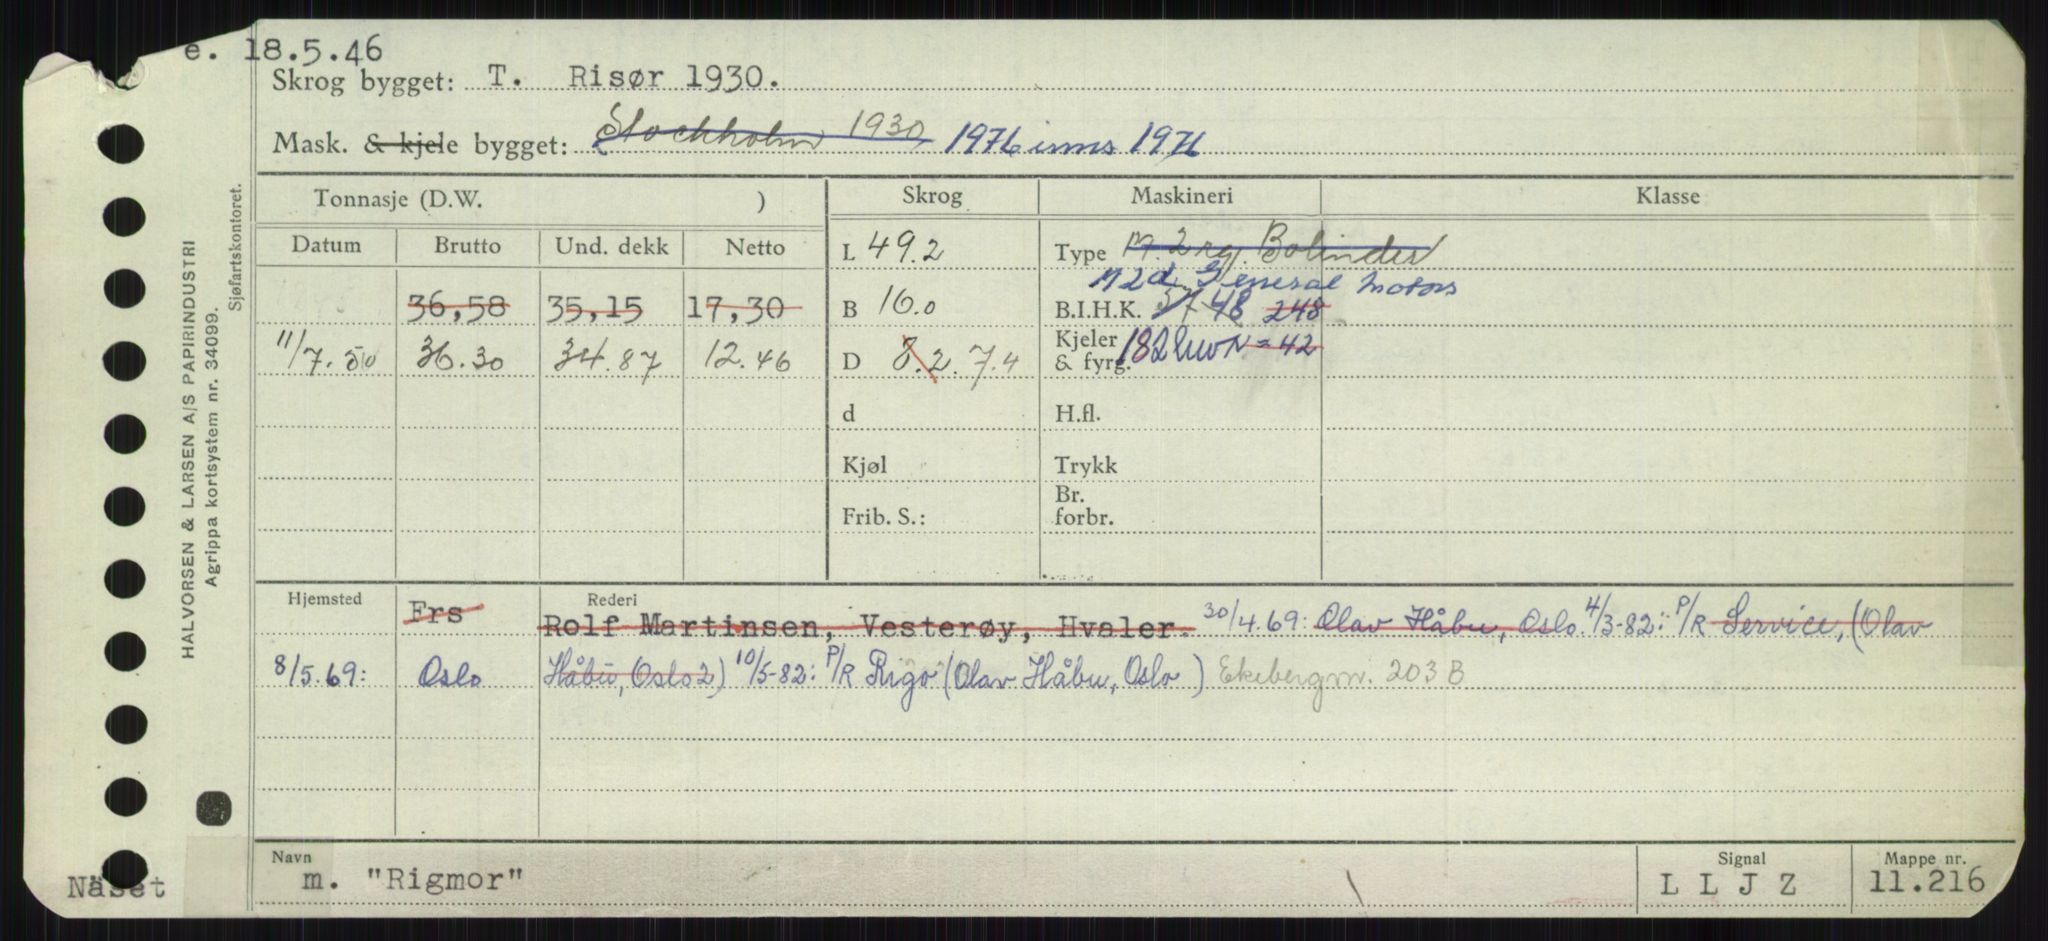 e. 18.5.46
Skrog bygget: T. Risør 1930.
Mask. & kjele bygget: Stockholm 1930 1976 inns 1976
Tonnasje (D.W. ) Skrog Maskineri Klasse
Datum Brutto Und. dekk Netto
L 49.2 Type M. 2 rg. Bolinder
M 2d. General Motors
36,58 35,15 17,30 B 16.0 B.I.H.K. 48 248
11/7.50 36.30 34.87 12.46 D 8.2. 7.4 Kjeler & fyrg. 182 NHK = 42
d H.fl.
Kjøl Trykk
Frib. S.: Br. forbr.
Hjemsted Rederi
Frs Rolf Martinsen, Vesterøy, Hvaler. 30/4.69: Olav Håbu, Oslo. 4/3-82: P/R Service, (Olav
8/5.69: Oslo Håbu, Oslo 2) 10/5-82: P/R Rigo (Olav Håbu, Oslo ) Ekebergvn. 203 B
Navn Signal Mappe nr.
Näset m. "Rigmor" L L J Z 11.216
HALVORSEN & LARSEN A/S PAPIRINDUSTRI
Agrippa kortsystem nr. 34099.
Sjøfartskontoret.